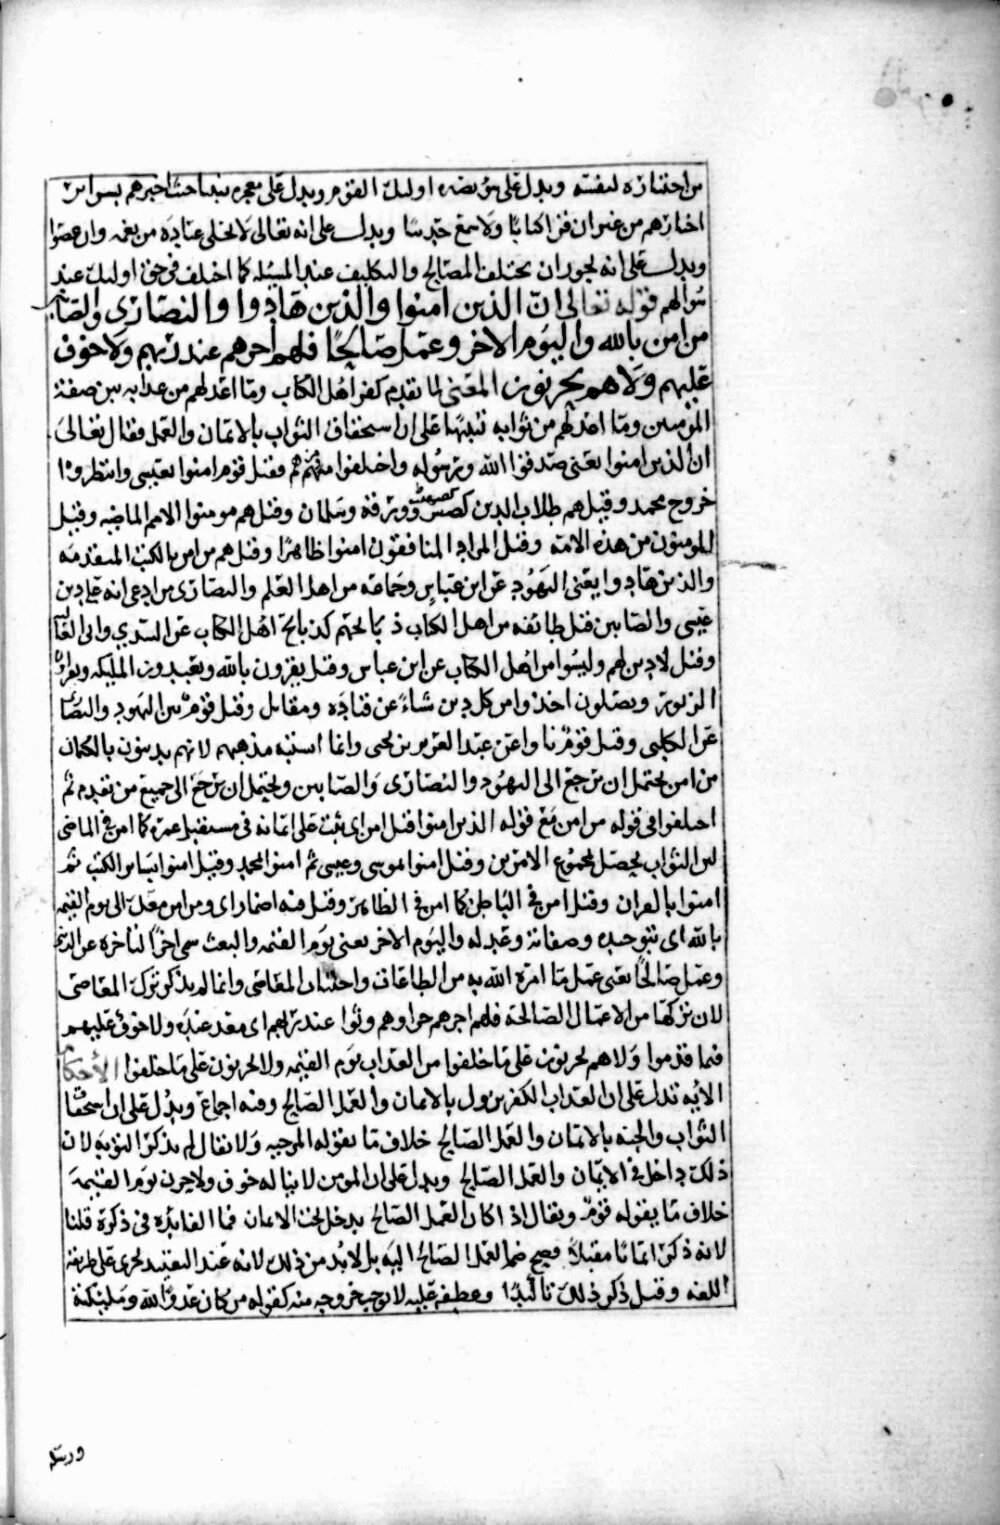 من اختياره لنفسه ويدل على سوء نصره اوليك القوم ويدل على معجزة نبينا حيث اخبرهم بسراير
اخبارهم من غير ان قرا كتابا ولا سمع حديثا ويدل على انه تعالى لا يخلى عباده من نعمه وان عصوا
ويدل على انه يجوز ان تختلف المصالح والتكليف عند المسئلة كما اختلف في حق اوليك عند
سوالهم قوله تعالى ان الذين امنوا والذين هادوا والنصارى والصابين
من امن بالله واليوم الاخر وعمل صالحا فلهم اجرهم عند ربهم ولا خوف
عليهم ولا هم يحزنون المعنى لما تقدم كفر اهل الكتاب وما اعد لهم من عذابه بين صفة
المومنين وما اعد لهم من ثوابه تنبيها على ان استحقاق الثواب بالايمان والعمل فقال تعالى
ان الذين امنوا يعنى صدقوا الله ورسوله واختلفوا من هم فقيل قوم امنوا بعيسى وانتظروا
خروج محمد وقيل هم طلاب الدين كقس وورقة وسلمان وقيل هم مومنوا الامم الماضية وقيل
المومنون من هذه الامة وقيل المراد المنافقون امنوا ظاهرا وقيل هم من امن بالكتب المتقدمه
والذين هادوا يعنى اليهود عن ابن عباس وجماعه من اهل العلم والنصارى من ادعى انه على دين
عيسى والصابين قيل طائفه من اهل الكتاب ذبائحهم كذبائح اهل الكتاب عن السدي وابى العالية
وقيل لا دين لهم وليسوا من اهل الكتاب عن ابن عباس وقيل يقرون بالله ويعبدون المليكه ويقراون
الزبور ويصلون اخذوا من كل دين شاء عن قتاده ومقاتل وقيل قوم بين اليهود والنصارى
عن الكلبى وقيل قوم بادوا عن عبد العزيز بن يحيى وانما اشتبه مذهبهم لانهم يدينون بالكتمان
من امن يحتمل ان ترجع الى اليهود والنصارى والصابين ويحتمل ان ترجع الى جميع من تقدم ثم
اختلفوا في قوله من امن مع قوله الذين امنوا قيل امن اى ثبت على ايمانه فى مستقبل عمره كما امن في الماضى
لان الثواب يحصل بمجموع الامرين وقيل امنوا بموسى وعيسى ثم امنوا بمحمد وقيل امنوا بساير الكتب ثم
امنوا بالقران وقيل امن في الباطن كما امن في الظاهر وقيل فيه اضمار اى ومن امن بعدك الى يوم القيمه
بالله اى بتوحيده وصفاته وعدله واليوم الاخر يعنى يوم القيمه والبعث سمى اخرا لتأخره عن الدنيا
وعمل صالحا يعنى عمل ما امره الله به من الطاعات واجتناب المعاصى وانما لم يذكر ترك المعاصى
لان تركها من الاعمال الصالحة فلهم اجرهم جزاوهم وثوابا عند ربهم اى معد عنده ولا خوف عليهم
فيما قدموا ولا هم يحزنون على ما خلفوا من العذاب يوم القيمه ولا يحزنون على ما خلفوا الأحكام
الايه تدل على ان العذاب الكفر يزول بالايمان والعمل الصالح وفيه اجماع ويدل على ان استحقاق
الثواب والجنه بالايمان والعمل الصالح خلاف ما يقوله المرجيه ولا يقال لم يذكر التوبه لان
ذلك داخل في الايمان والعمل الصالح ويدل على ان المومن لا يناله خوف ولا حزن يوم القيمة
خلاف ما يقوله قوم ويقال اذا كان العمل الصالح يدخل تحت الايمان فما الفايده فى ذكره قلنا
لانه ذكر ايمانا مقبلا فصح ضم العمل الصالح اليه بل لابد من ذلك لانه عند التقييد يجرى على طريقة
اللغه وقيل ذكر ذلك تأكيدا وعطفه عليه لا يوجب خروجه منه كقوله من كان عدوا لله وملئكته
ورسله